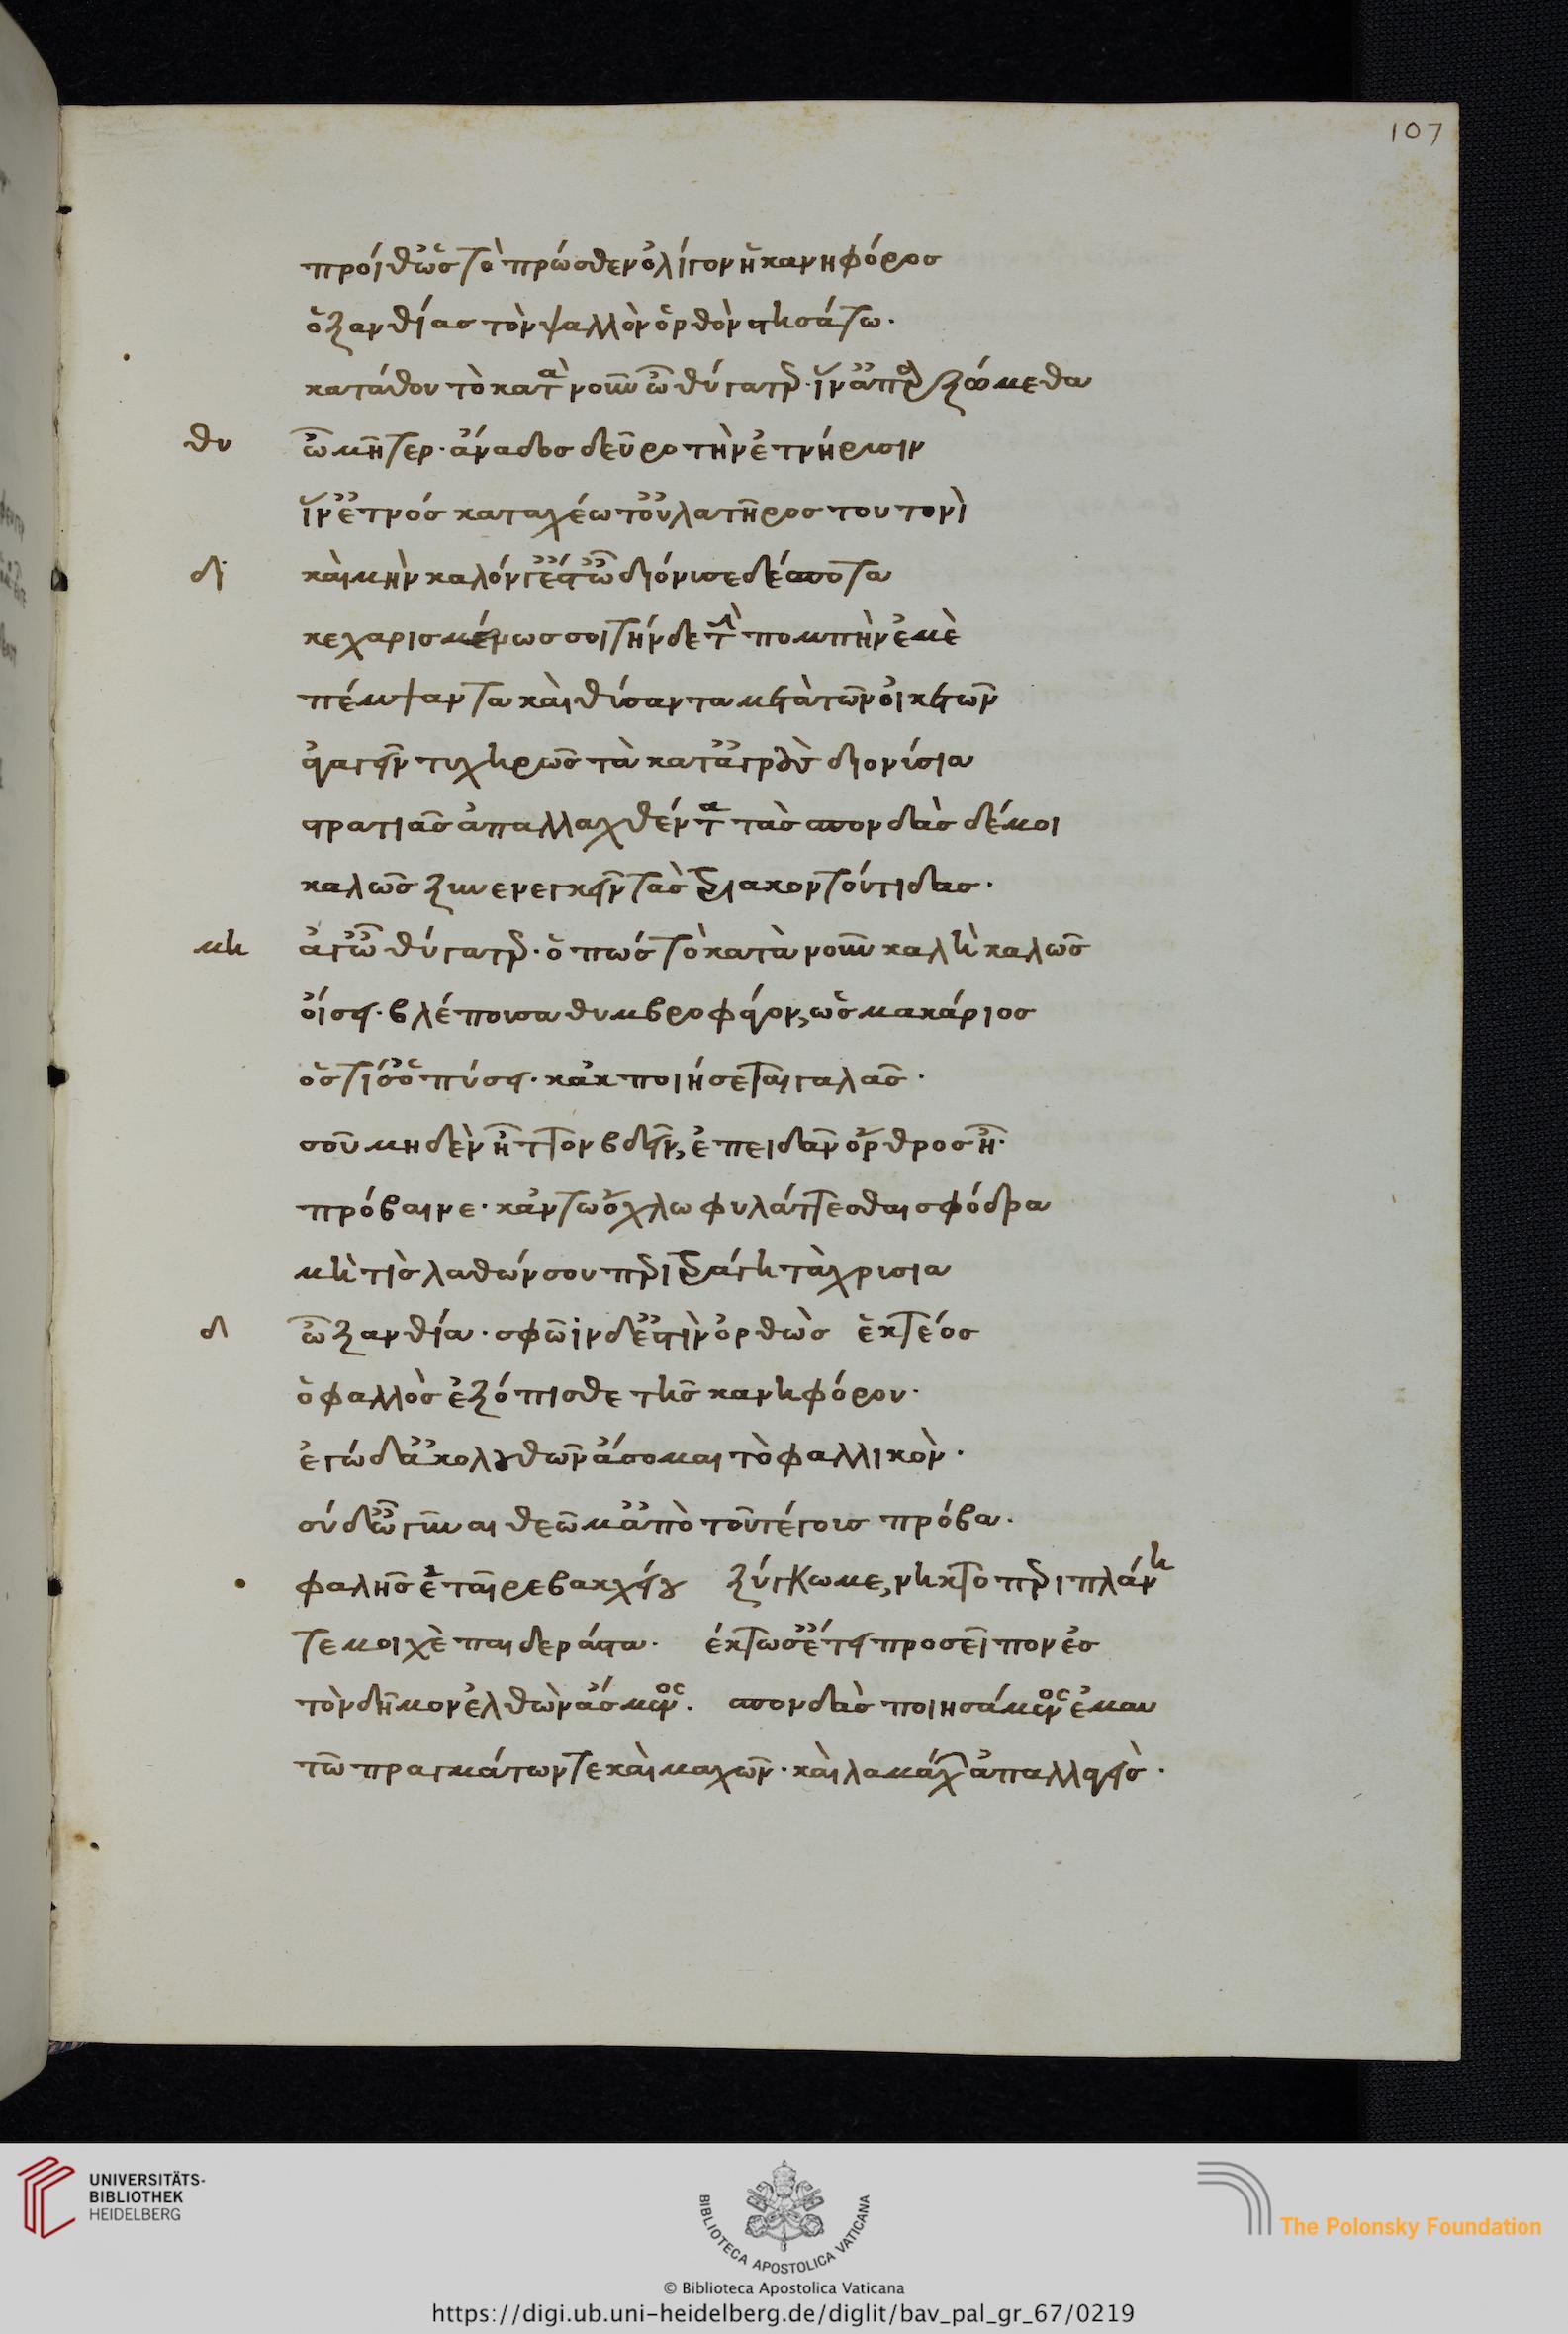 107
πρόϊθ' ὡς τὸ πρώσθεν ὀλίγον ἡ κανηφόρος
ὁ ξανθίας τὸν ψαλλὸν ὀρθὸν στησάτω.
κατάθου τὸ κατανοῦν ὦ θύγατερ· ἵν' ἀπαρξώμεθα
θυ ὦ μῆτερ· ἀνάδος δεῦρο τὴν ἐτνήρυσιν
ἵν' ἔτνος καταχέω τοὐλατῆρος τουτονὶ
δι καὶ μὴν καλόν γ' ἔστ' ὦ διόνυσε δέσποτα
κεχαρισμένως σοι τήνδε τὴν πομπὴν ἐμὲ
πέμψαντα καὶ θύσαντα μετὰ τῶν οἰκετῶν
ἀγαγεῖν τυχηρῶς τὰ κατ' ἀγροὺς διονύσια
στρατιᾶς ἀπαλλαχθέντα τὰς σπονδὰς δέ μοι
καλῶς ξυνενεγκεῖν τὰς τριακοντούτιδας.
μη ἄγ' ὦ θύγατερ· ὅπως τὸ κατὰνοῦν καλὴ καλῶς
οἴσεις· βλέπουσα θυμβροφάγον, ὡς μακάριος
ὅστις σ' ὀπύσει· κἀκποιήσεται γαλᾶς·
σοῦ μηδὲν ἧττον βδεῖν, ἐπειδὰν ὄρθρος ᾖ·
πρόβαινε· κἀν τὤχλω φυλάττεσθαι σφόδρα
μή τις λαθών σου περιτράγη τὰ χρυσία
δι ὦ ξανθία· σφῶϊν δ' ἐστὶν ὀρθὸς ἑκτέος
ὁ φαλλὸς ἐξόπισθε τῆς κανηφόρου·
ἐγὼ δ' ἀκολουθῶν ἄσομαι τὸ φαλλικὸν·
σὺ δ' ὦ γύναι θεῶ μ' ἀπὸ τοῦ τέγους πρόβα.
φαλῆς ἑταῖρε βακχείου ξύγκωμε, νυκτοπεριπλάνη
τε μοιχὲ παιδεραστά. ἕκτω σ' ἔτει προσεῖπον ἐς
τὸν δῆμον ἐλθὼν ἄσμενος. σπονδὰς ποιησάμενος ἐμαυ
τῶ πραγμάτων τε καὶ μαχῶν· καὶ λαμάχων ἀπαλλαγείς·
UNIVERSITÄTS-
BIBLIOTHEK
HEIDELBERG
BIBLIOTECA APOSTOLICA VATICANA
The Polonsky Foundation
© Biblioteca Apostolica Vaticana
https://digi.ub.uni-heidelberg.de/diglit/bav_pal_gr_67/0219